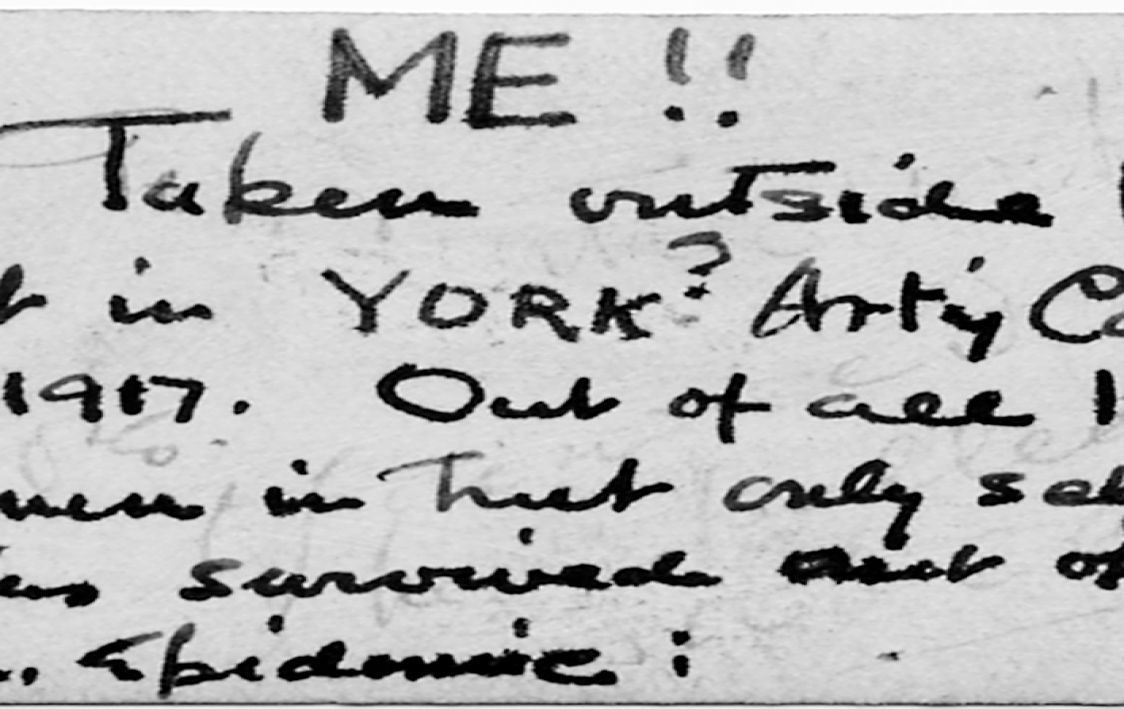 ME !!
Taken outside
in YORK? Art'y
1917. Out of all
men in hut only
survived out
Epidemic :